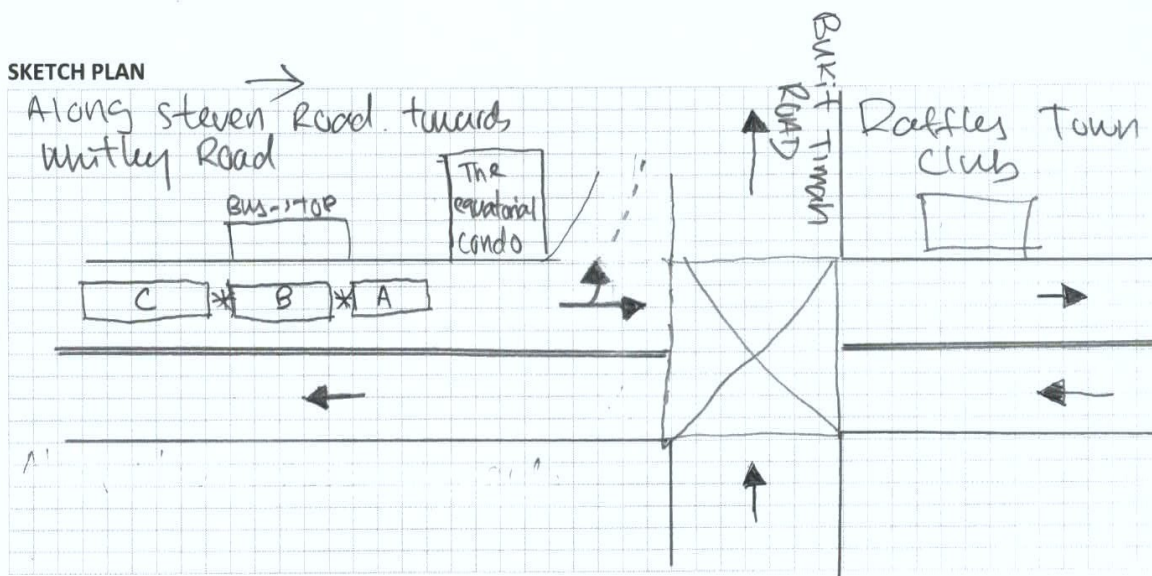 SKETCH PLAN
Along Steven Road towards
Whitley Road
Bus-stop
The
equatorial
Condo
Bukit Timah
ROAD
Raffles Town
Club
C * B * A